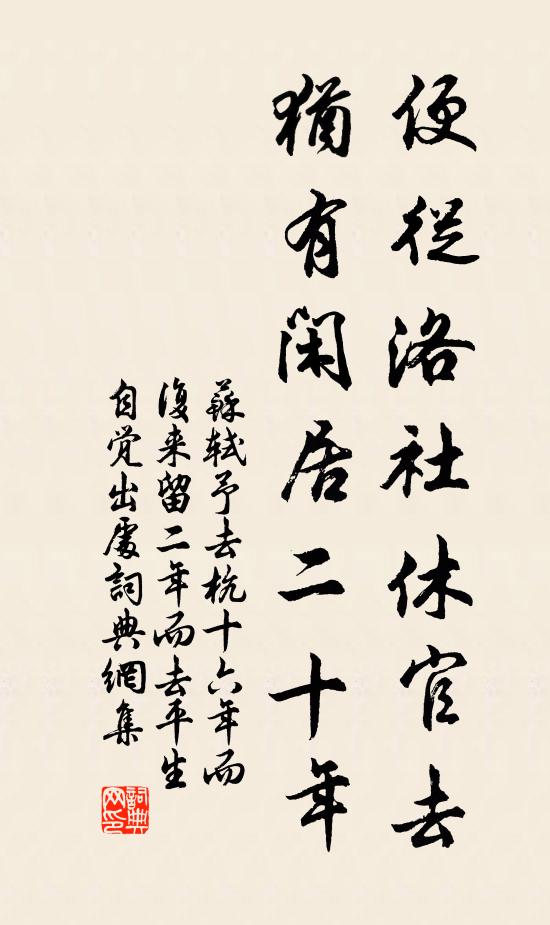 便從洛社休官去
猶有閑居二十年
蘇軾予去杭十六年而
復来留二年而去平生
自覚出處詞典網集
詞典
网印